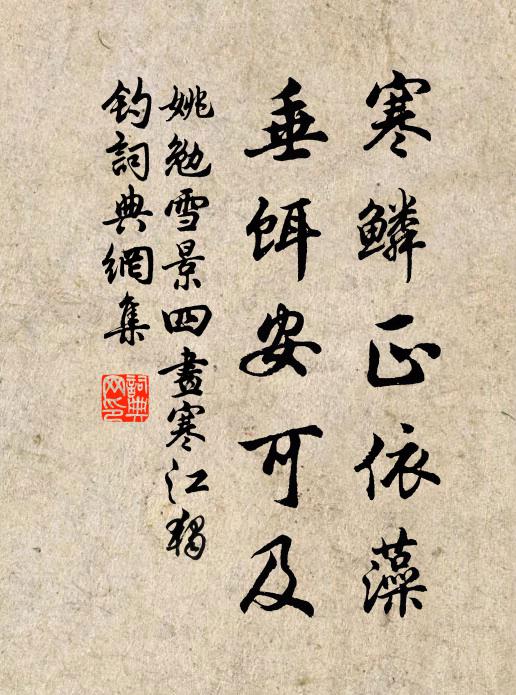 寒鳞正依藻
垂饵安可及
姚勉雪景四畫寒江獨
钓詞典網集
詞典网印